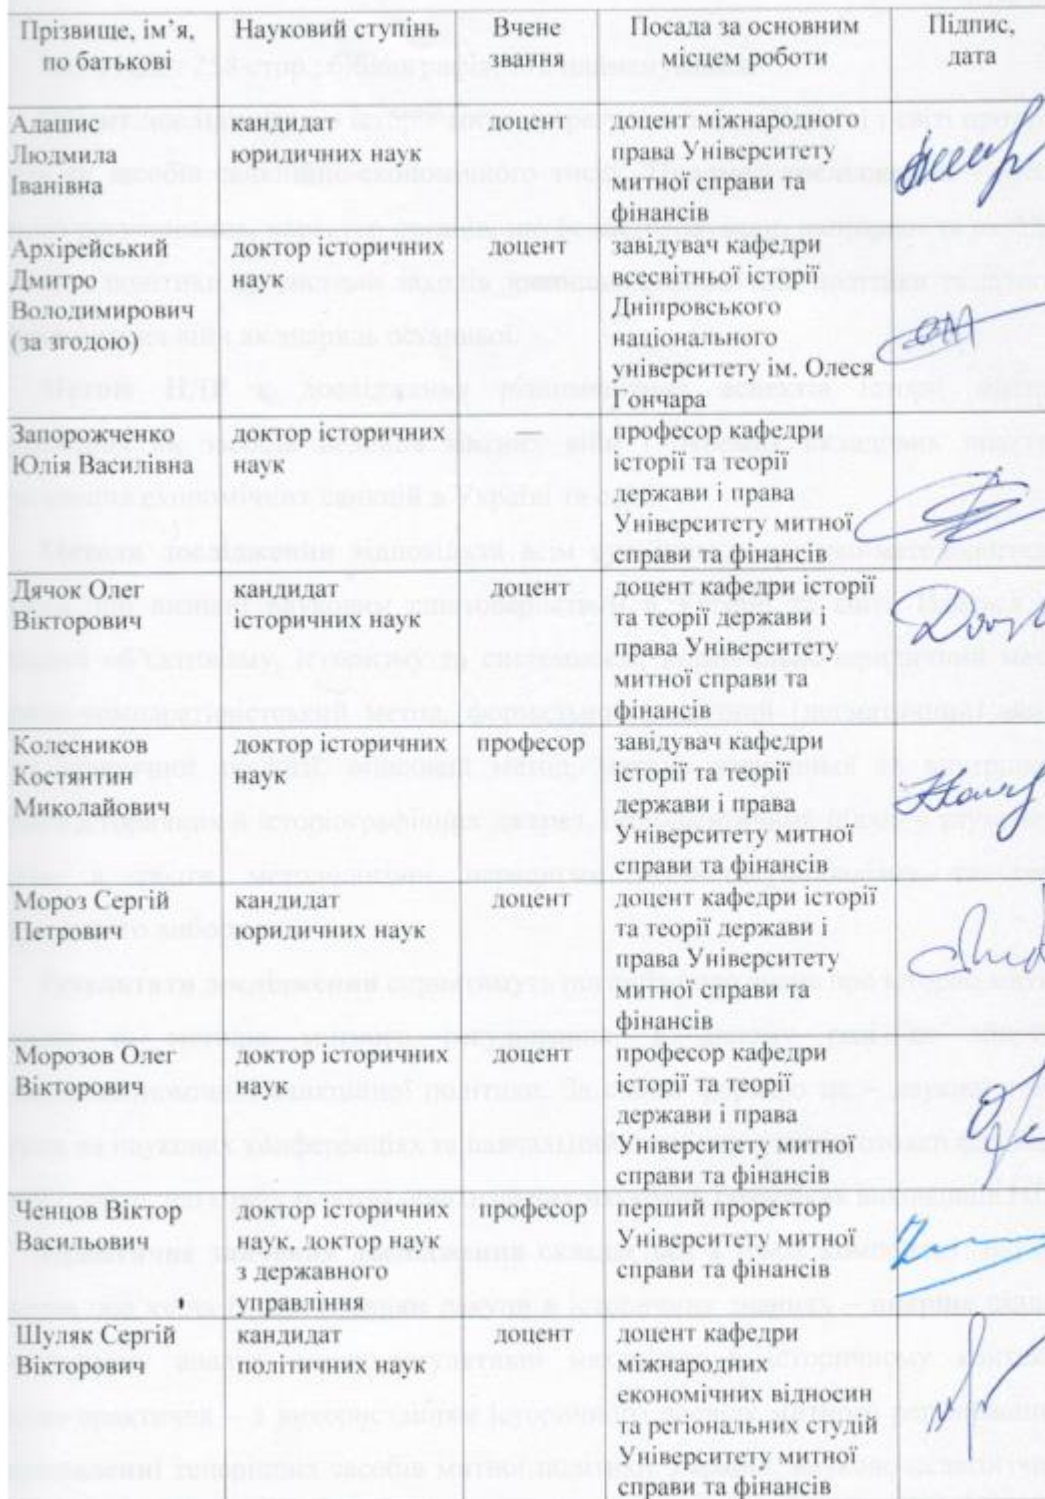 Прізвище, ім’я,
по батькові
Науковий ступінь
Вчене
звання
Посада за основним
місцем роботи
Підпис,
дата
Адашис
Людмила
Іванівна
кандидат
юридичних наук
доцент
доцент міжнародного
права Університету
митної справи та
фінансів
Архірейський
Дмитро
Володимирович
(за згодою)
доктор історичних
наук
доцент
завідувач кафедри
всесвітньої історії
Дніпровського
національного
університету ім. Олеся
Гончара
Запорожченко
Юлія Василівна
доктор історичних
наук
—
професор кафедри
історії та теорії
держави і права
Університету митної
справи та фінансів
Дячок Олег
Вікторович
кандидат
історичних наук
доцент
доцент кафедри історії
та теорії держави і
права Університету
митної справи та
фінансів
Колесников
Костянтин
Миколайович
доктор історичних
наук
професор
завідувач кафедри
історії та теорії
держави і права
Університету митної
справи та фінансів
Мороз Сергій
Петрович
кандидат
юридичних наук
доцент
доцент кафедри історії
та теорії держави і
права Університету
митної справи та
фінансів
Морозов Олег
Вікторович
доктор історичних
наук
доцент
професор кафедри
історії та теорії
держави і права
Університету митної
справи та фінансів
Ченцов Віктор
Васильович
доктор історичних
наук, доктор наук
з державного
управління
професор
перший проректор
Університету митної
справи та фінансів
Шуляк Сергій
Вікторович
кандидат
політичних наук
доцент
доцент кафедри
міжнародних
економічних відносин
та регіональних студій
Університету митної
справи та фінансів